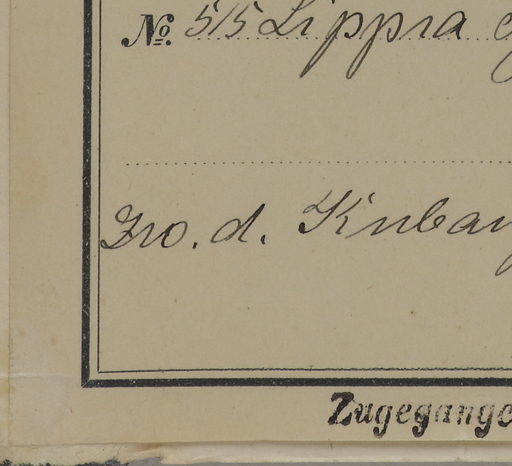 No. 515 Lippia
Zro. d. Kuban
Zugegange